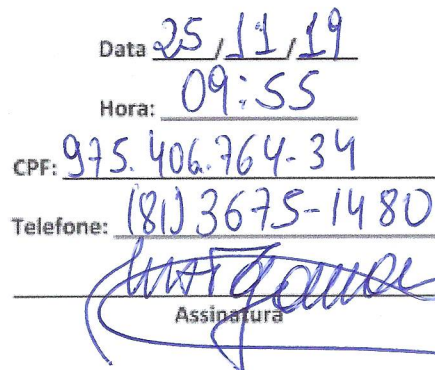 Data 25/11/19
Hora: 09:55
CPF: 975.406.764-34
Telefone: (81) 3675-1480
Assinatura